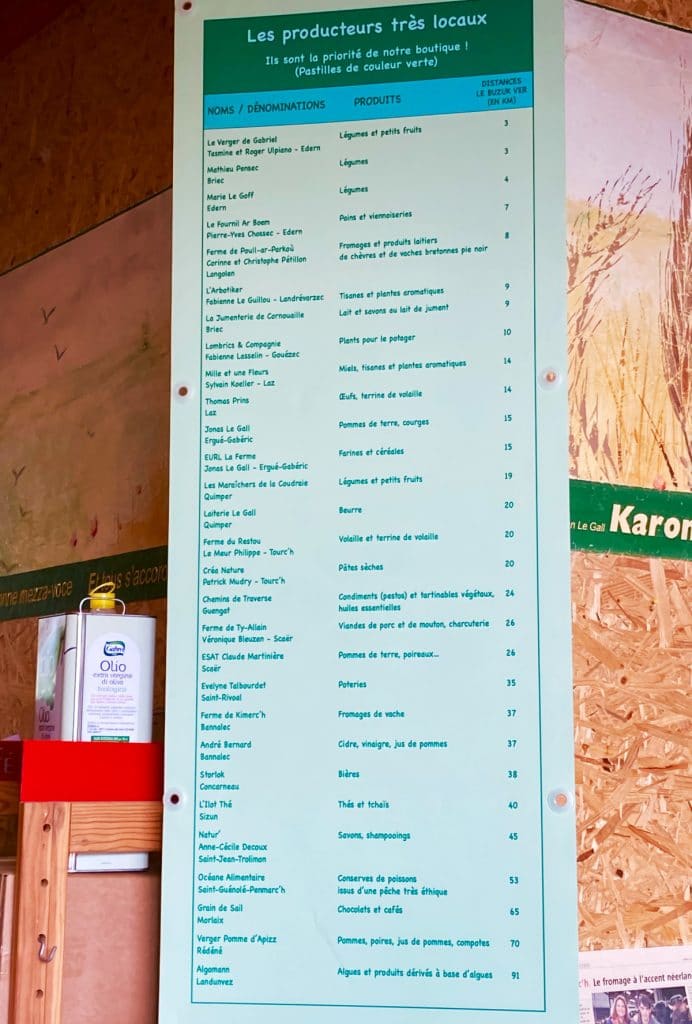 Les producteurs très locaux
Ils sont la priorité de notre boutique !
(Pastilles de couleur verte)
NOMS / DÉNOMINATIONS PRODUITS DISTANCES
LE BUZUK VER
(EN KM)
Le Verger de Gabriel Légumes et petits fruits 3
Tasmine et Roger Ulpiano - Edern
Mathieu Pensec Légumes 3
Briec
Marie Le Goff Légumes 4
Edern
Le Fournil Ar Boem Pains et viennoiseries 7
Pierre-Yves Chossec - Edern
Ferme de Poull-ar-Parkoù Fromages et produits laitiers 8
Corinne et Christophe Pétillon de chèvres et de vaches bretonnes pie noir
Langolen
L'Arbotiker Tisanes et plantes aromatiques 9
Fabienne Le Guillou - Landrévarzec
La Jumenterie de Cornouaille Lait et savons au lait de jument 9
Briec
Lombrics & Compagnie Plants pour le potager 10
Fabienne Lasselin - Gouézec
Mille et une Fleurs Miels, tisanes et plantes aromatiques 14
Sylvain Koeller - Laz
Thomas Prins Œufs, terrine de volaille 14
Laz
Jonas Le Gall Pommes de terre, courges 15
Ergué-Gabéric
EURL La Ferme Farines et céréales 15
Jonas Le Gall - Ergué-Gabéric
Les Maraîchers de la Coudraie Légumes et petits fruits 19
Quimper
Laiterie Le Gall Beurre 20
Quimper
Ferme du Restou Volaille et terrine de volaille 20
Le Meur Philippe - Tourc'h
Créa Nature Pâtes sèches 20
Patrick Mudry - Tourc'h
Chemins de Traverse Condiments (pestos) et tartinables végétaux, 24
Guengat huiles essentielles
Ferme de Ty-Allain Viandes de porc et de mouton, charcuterie 26
Véronique Bleuzen - Scaër
ESAT Claude Martinière Pommes de terre, poireaux... 26
Scaër
Evelyne Talbourdet Poteries 35
Saint-Rivoal
Ferme de Kimerc'h Fromages de vache 37
Bannalec
André Bernard Cidre, vinaigre, jus de pommes 37
Bannalec
Storlok Bières 38
Concarneau
L'Ilot Thé Thés et tchaïs 40
Sizun
Natur' Savons, shampooings 45
Anne-Cécile Decoux
Saint-Jean-Trolimon
Océane Alimentaire Conserves de poissons 53
Saint-Guénolé-Penmarc'h issus d'une pêche très éthique
Grain de Sail Chocolats et cafés 65
Morlaix
Verger Pomme d'Apizz Pommes, poires, jus de pommes, compotes 70
Rédéné
Algomann Algues et produits dérivés à base d'algues 91
Landunvez
n Le Gall Karon
onne mezza-voce Et tous s'accord
Olio
extra vergine
di oliva
biologico
'h. Le fromage à l'accent néerlan